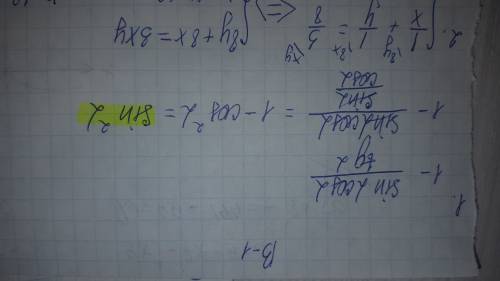 В-1
1. 1 - sinαcosα / tgα
1 - sinαcosα / (sinα / cosα) = 1 - cos²α = sin²α
2. { 1/x \8y + 1/y \8x = 5/8 \xy <=> { 8y + 8x = 5xy